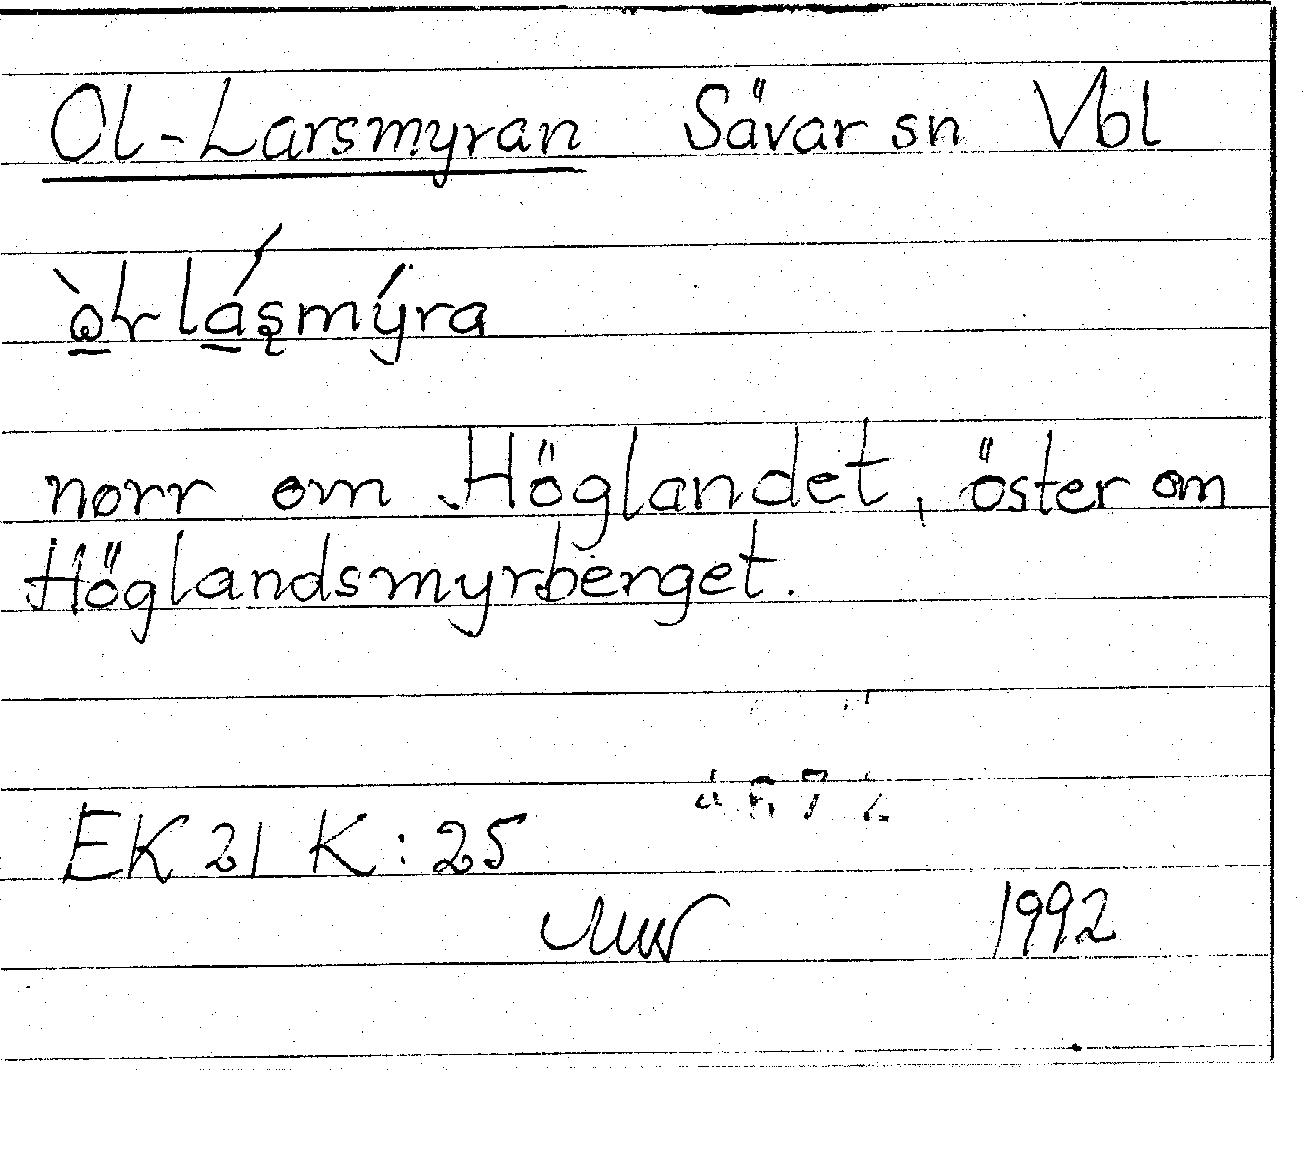 Ol-Larsmyran Sävar sn Vbl
norr om Höglandet, öster om
Höglandsmyrberget.
EK 21 K : 25
1992